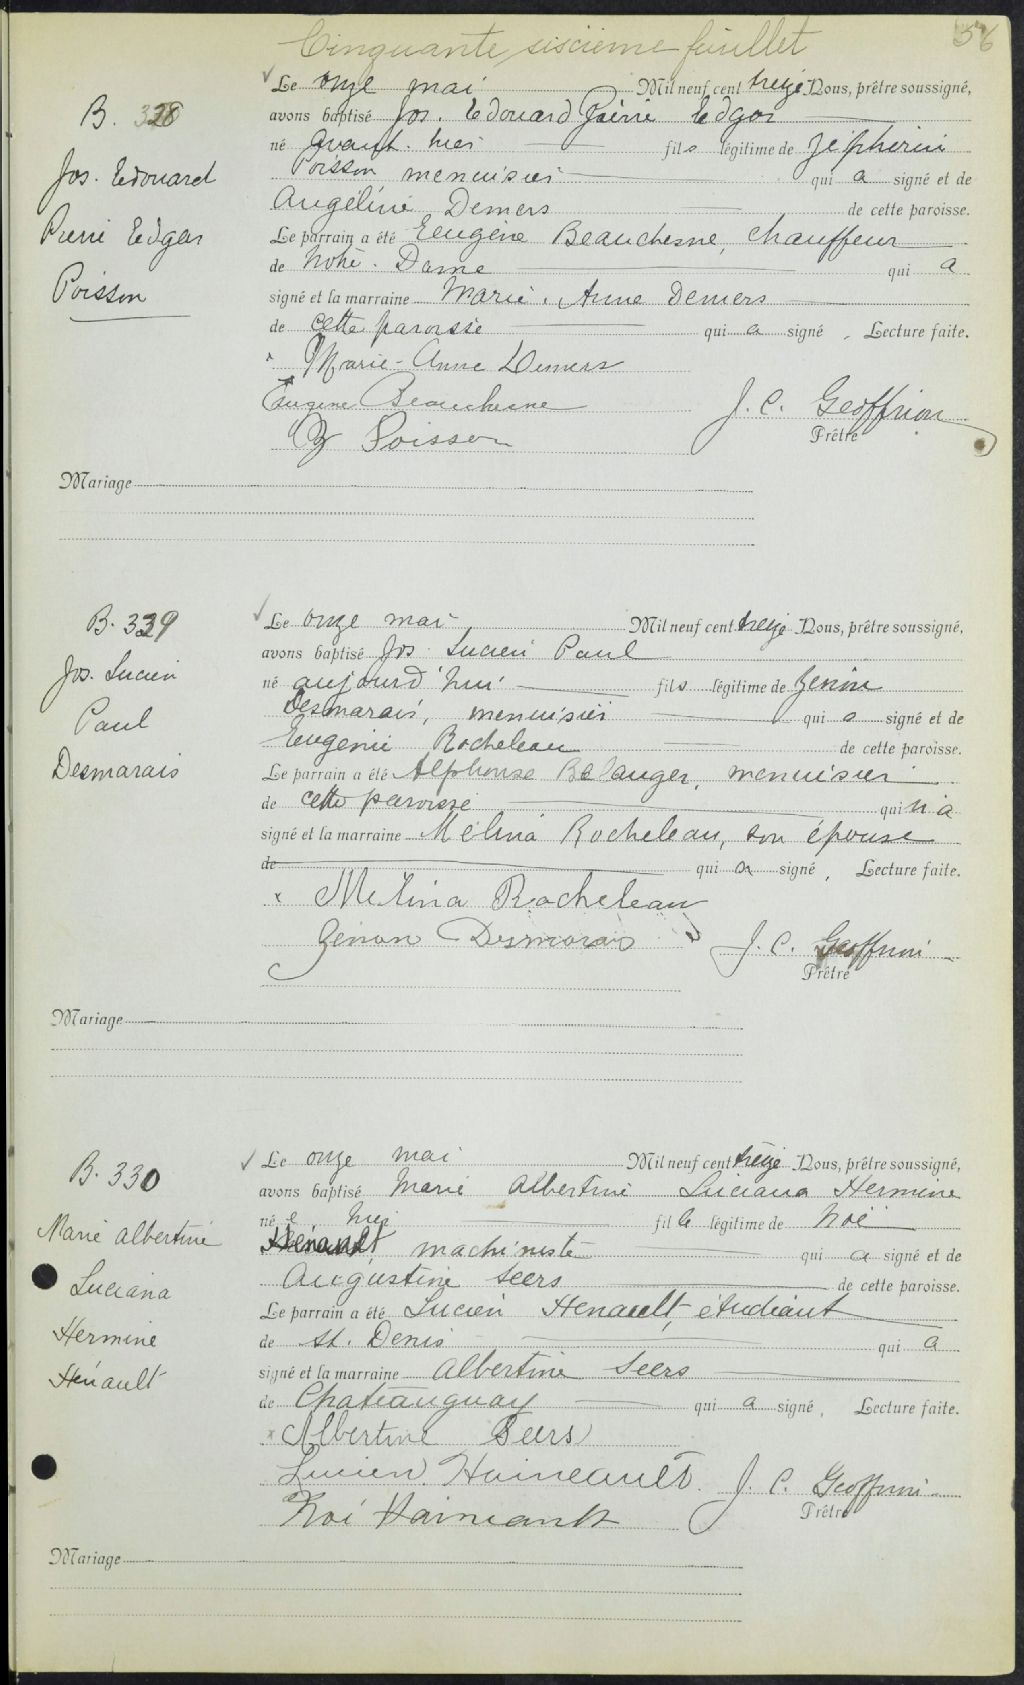 Cinquante siscieme feuillet
56
B. 328
Jos. Edouard
Pierre Edgar
Poisson
Le onze mai Mil neuf cent treize Nous, prêtre soussigné,
avons baptisé Jos. Edouard Pierre Edgar
né avant-hier fils légitime de Zéphirin
Poisson menuisier qui a signé et de
Angéline Demers de cette paroisse.
Le parrain a été Eugène Beauchesne, chauffeur
de Notre-Dame qui a
signé et la marraine Marie-Anne Demers
de cette paroisse qui a signé, Lecture faite.
Marie-Anne Demers
Eugene Beauchesne
Z Poisson
J. C. Geoffrion
Prêtre
Mariage
B. 339
Jos. Lucien
Paul
Desmarais
Le onze mai Mil neuf cent treize Nous, prêtre soussigné,
avons baptisé Jos. Lucien Paul
né aujourd'hui fils légitime de Zenon
Desmarais, menuisier qui a signé et de
Eugenie Rocheleau de cette paroisse.
Le parrain a été Alphonse Belanger, menuisier
de cette paroisse qui n'a
signé et la marraine Mélina Rocheleau, son épouse
de qui a signé, Lecture faite.
Melina Rocheleau
Zénon Desmarais
J. C. Geoffrion
Prêtre
Mariage
B. 330
Marie Albertine
Luciana
Hermine
Hénault
Le onze mai Mil neuf cent treize Nous, prêtre soussigné,
avons baptisé Marie Albertine Luciana Hermine
née hier fille légitime de Noé
Hénault machiniste qui a signé et de
Augustine Seers de cette paroisse.
Le parrain a été Lucien Henault, étudiant
de St. Denis qui a
signé et la marraine Albertine Seers
de Chateauguay qui a signé, Lecture faite.
Albertine Seers
Lucien Haineault
Noé Haineault
J. C. Geoffrion
Prêtre
Mariage